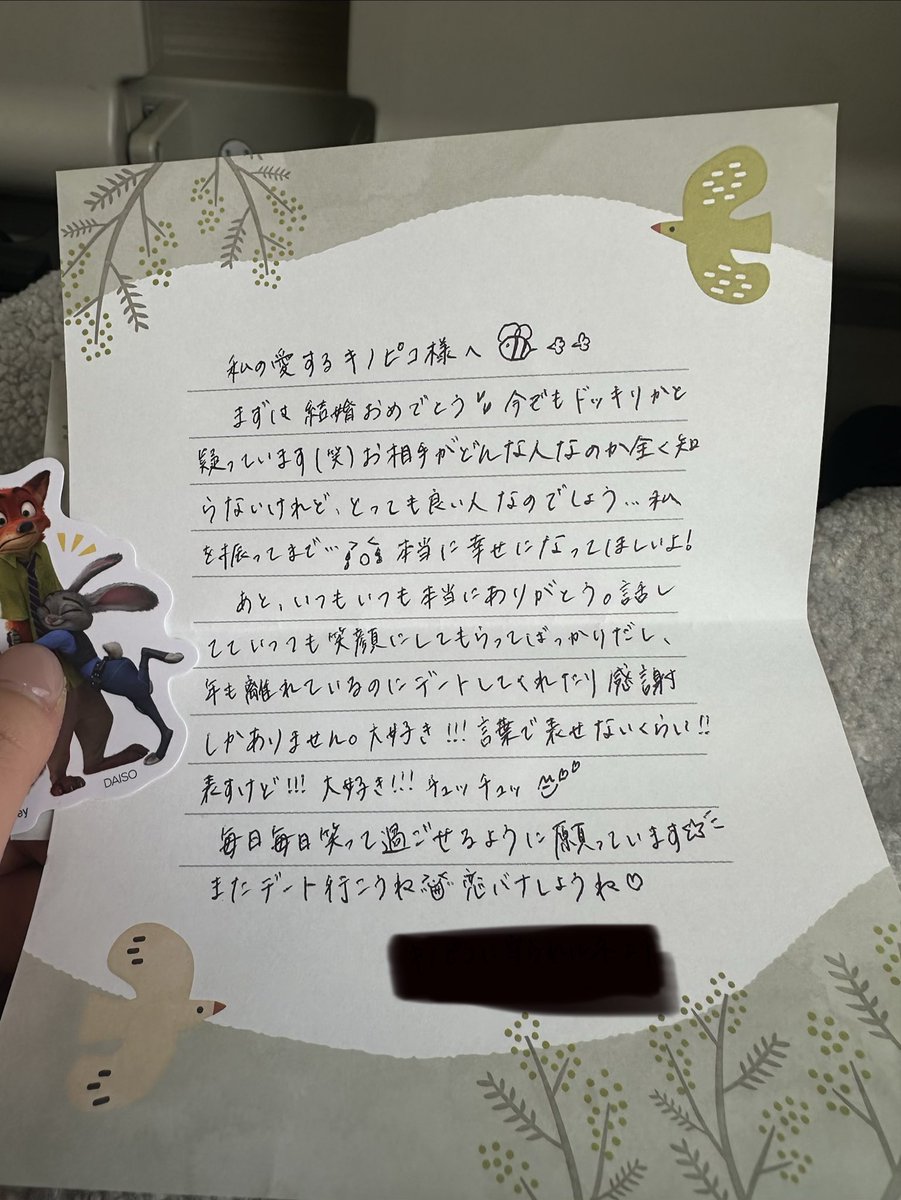 私の愛するキノピコ様へ
まずは結婚おめでとう 今でもドッキリかと
疑っています(笑)お相手がどんな人なのか全く知
らないけれど、とっても良い人なのでしょう…私
を振ってまで… 本当に幸せになってほしいよ!
あと、いつもいつも本当にありがとう。話し
てていっつも笑顔にしてもらってばっかりだし、
年も離れているのにデートしてくれたり感謝
しかありません。大好き!!!言葉で表せないくらい!!
表すけど!!!大好き!!!チュッチュッ
毎日毎日笑って過ごせるように願っています☆
またデート行こうね 恋バナしようね♡
DAISO